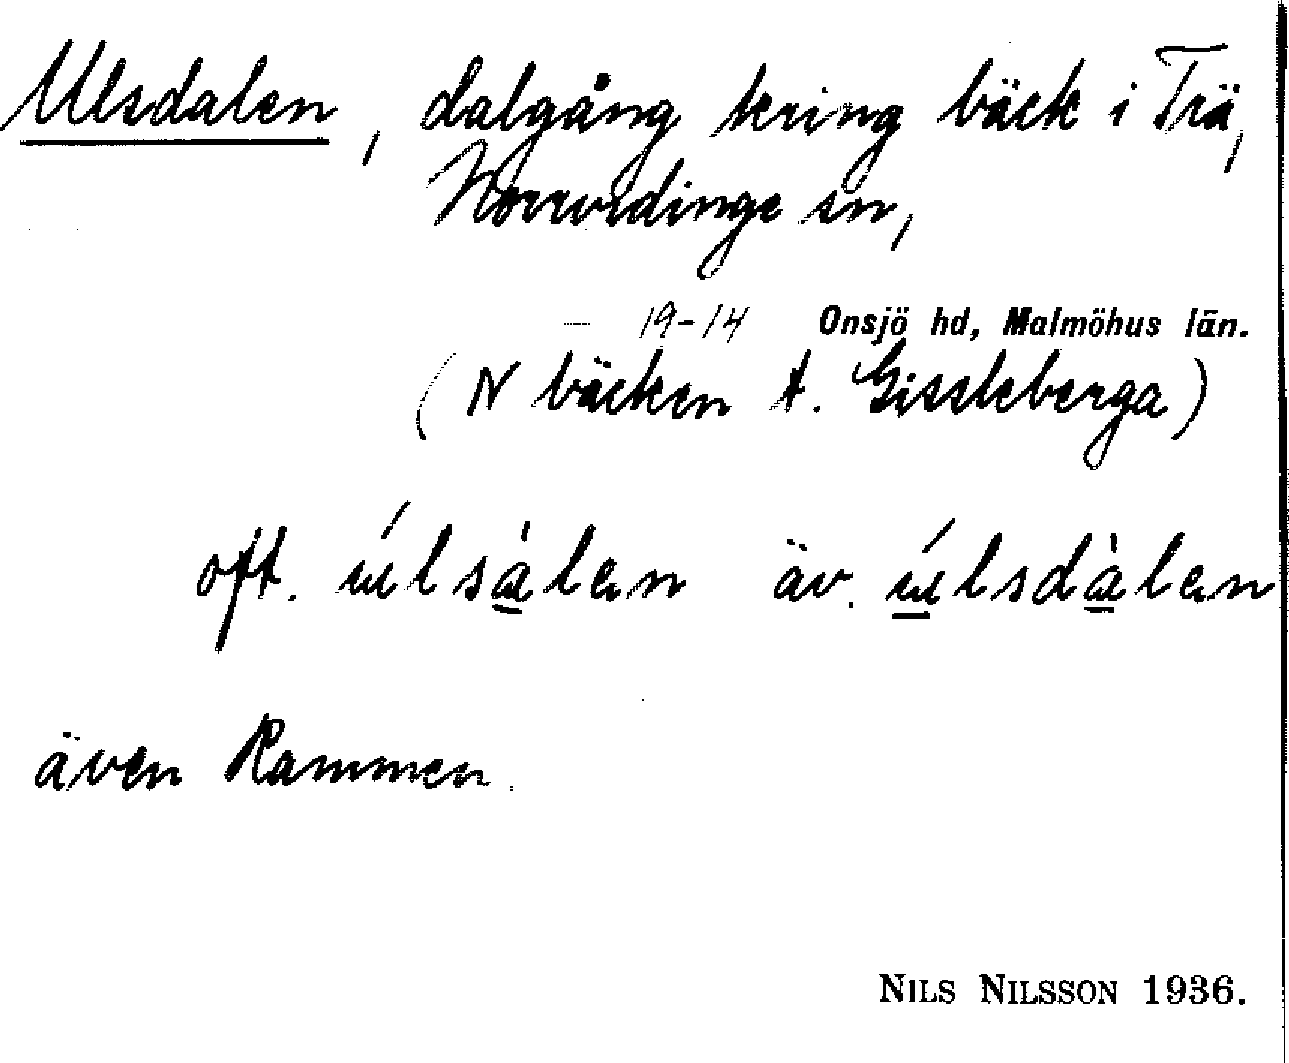 Ulsdalen, dalgång kring bäck i Trä,
Norrvidinge sn,
– 19-14 Onsjö hd, Malmöhus län.
(N bäcken t. Gissleberga)
oft. úlsàlen äv. úlsdàlen
även Rammen.
NILS NILSSON 1936.